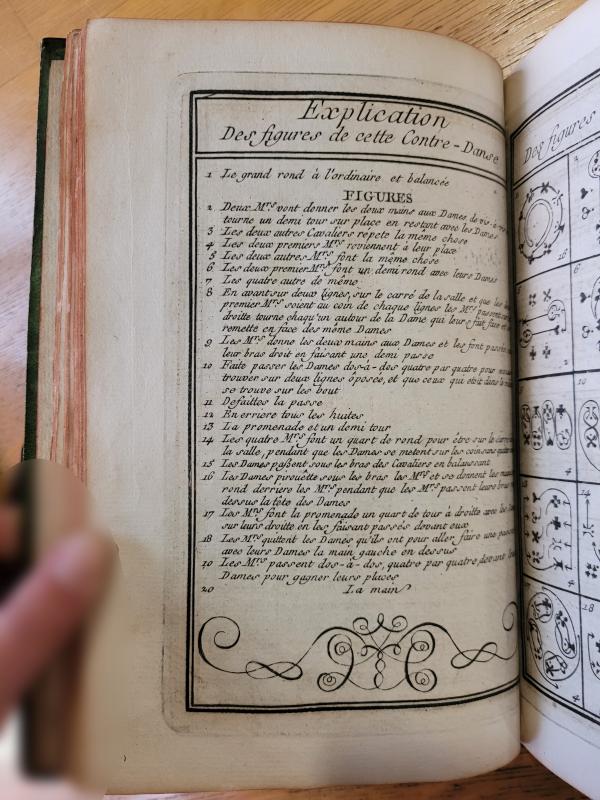 Explication
Des figures de cette Contre-Danse
1 Le grand rond à l'ordinaire et balancée
FIGURES
2 Deux Mrs vont donner les deux mains aux Dames de vis-à-vis
tourne un demi tour sur place en restant avec les Dames
3 Les deux autres Cavaliers répete la même chose
4 Les deux premiers Mrs reviennent à leur place
5 Les deux autres Mrs font la même chose
6 Les deux premier Mrs font un demi rond avec leurs Dames
7 Les quatre autre de même
8 En avant sur deux lignes, sur le carré de la salle et que les
premier Mrs soient au coin de chaque lignes les Mrs passent
droitte tourne chaqu'un autour de la Dame qui leur fait face et
remette en face des même Dames
9 Les Mrs donne les deux mains aux Dames et les font passés
leur bras droit en faisant une demi passe
10 Faite passer les Dames dos-à-dos quatre par quatre pour
trouver sur deux lignes oposée, et que ceux qui etoit dans le
se trouve sur les bout
11 Defaittes la passe
12 En erriere tous les huites
13 La promenade et un demi tour
14 Les quatre Mrs font un quart de rond pour être sur le
la salle, pendant que les Dames se metent sur les coins
15 Les Dames paßent sous les bras des Cavaliers en balanssant
16 Les Dames pirouëtte sous les bras les Mrs et se donnent les
rond derriere les Mrs pendant que les Mrs passent leurs bras
dessus la tête des Dames
17 Les Mrs font la promenade un quart de tour à droitte avec les
sur leurs droitte en les faisant passés devant eux
18 Les Mrs quittent les Dames qu'ils ont pour aller faire une
avec leurs Dames la main gauche en dessus
19 Les Mrs passent dos-à-dos, quatre par quatre devant
Dames pour gagner leurs places
20 La main
Des figures
16
2
10
4
14
4
18
4